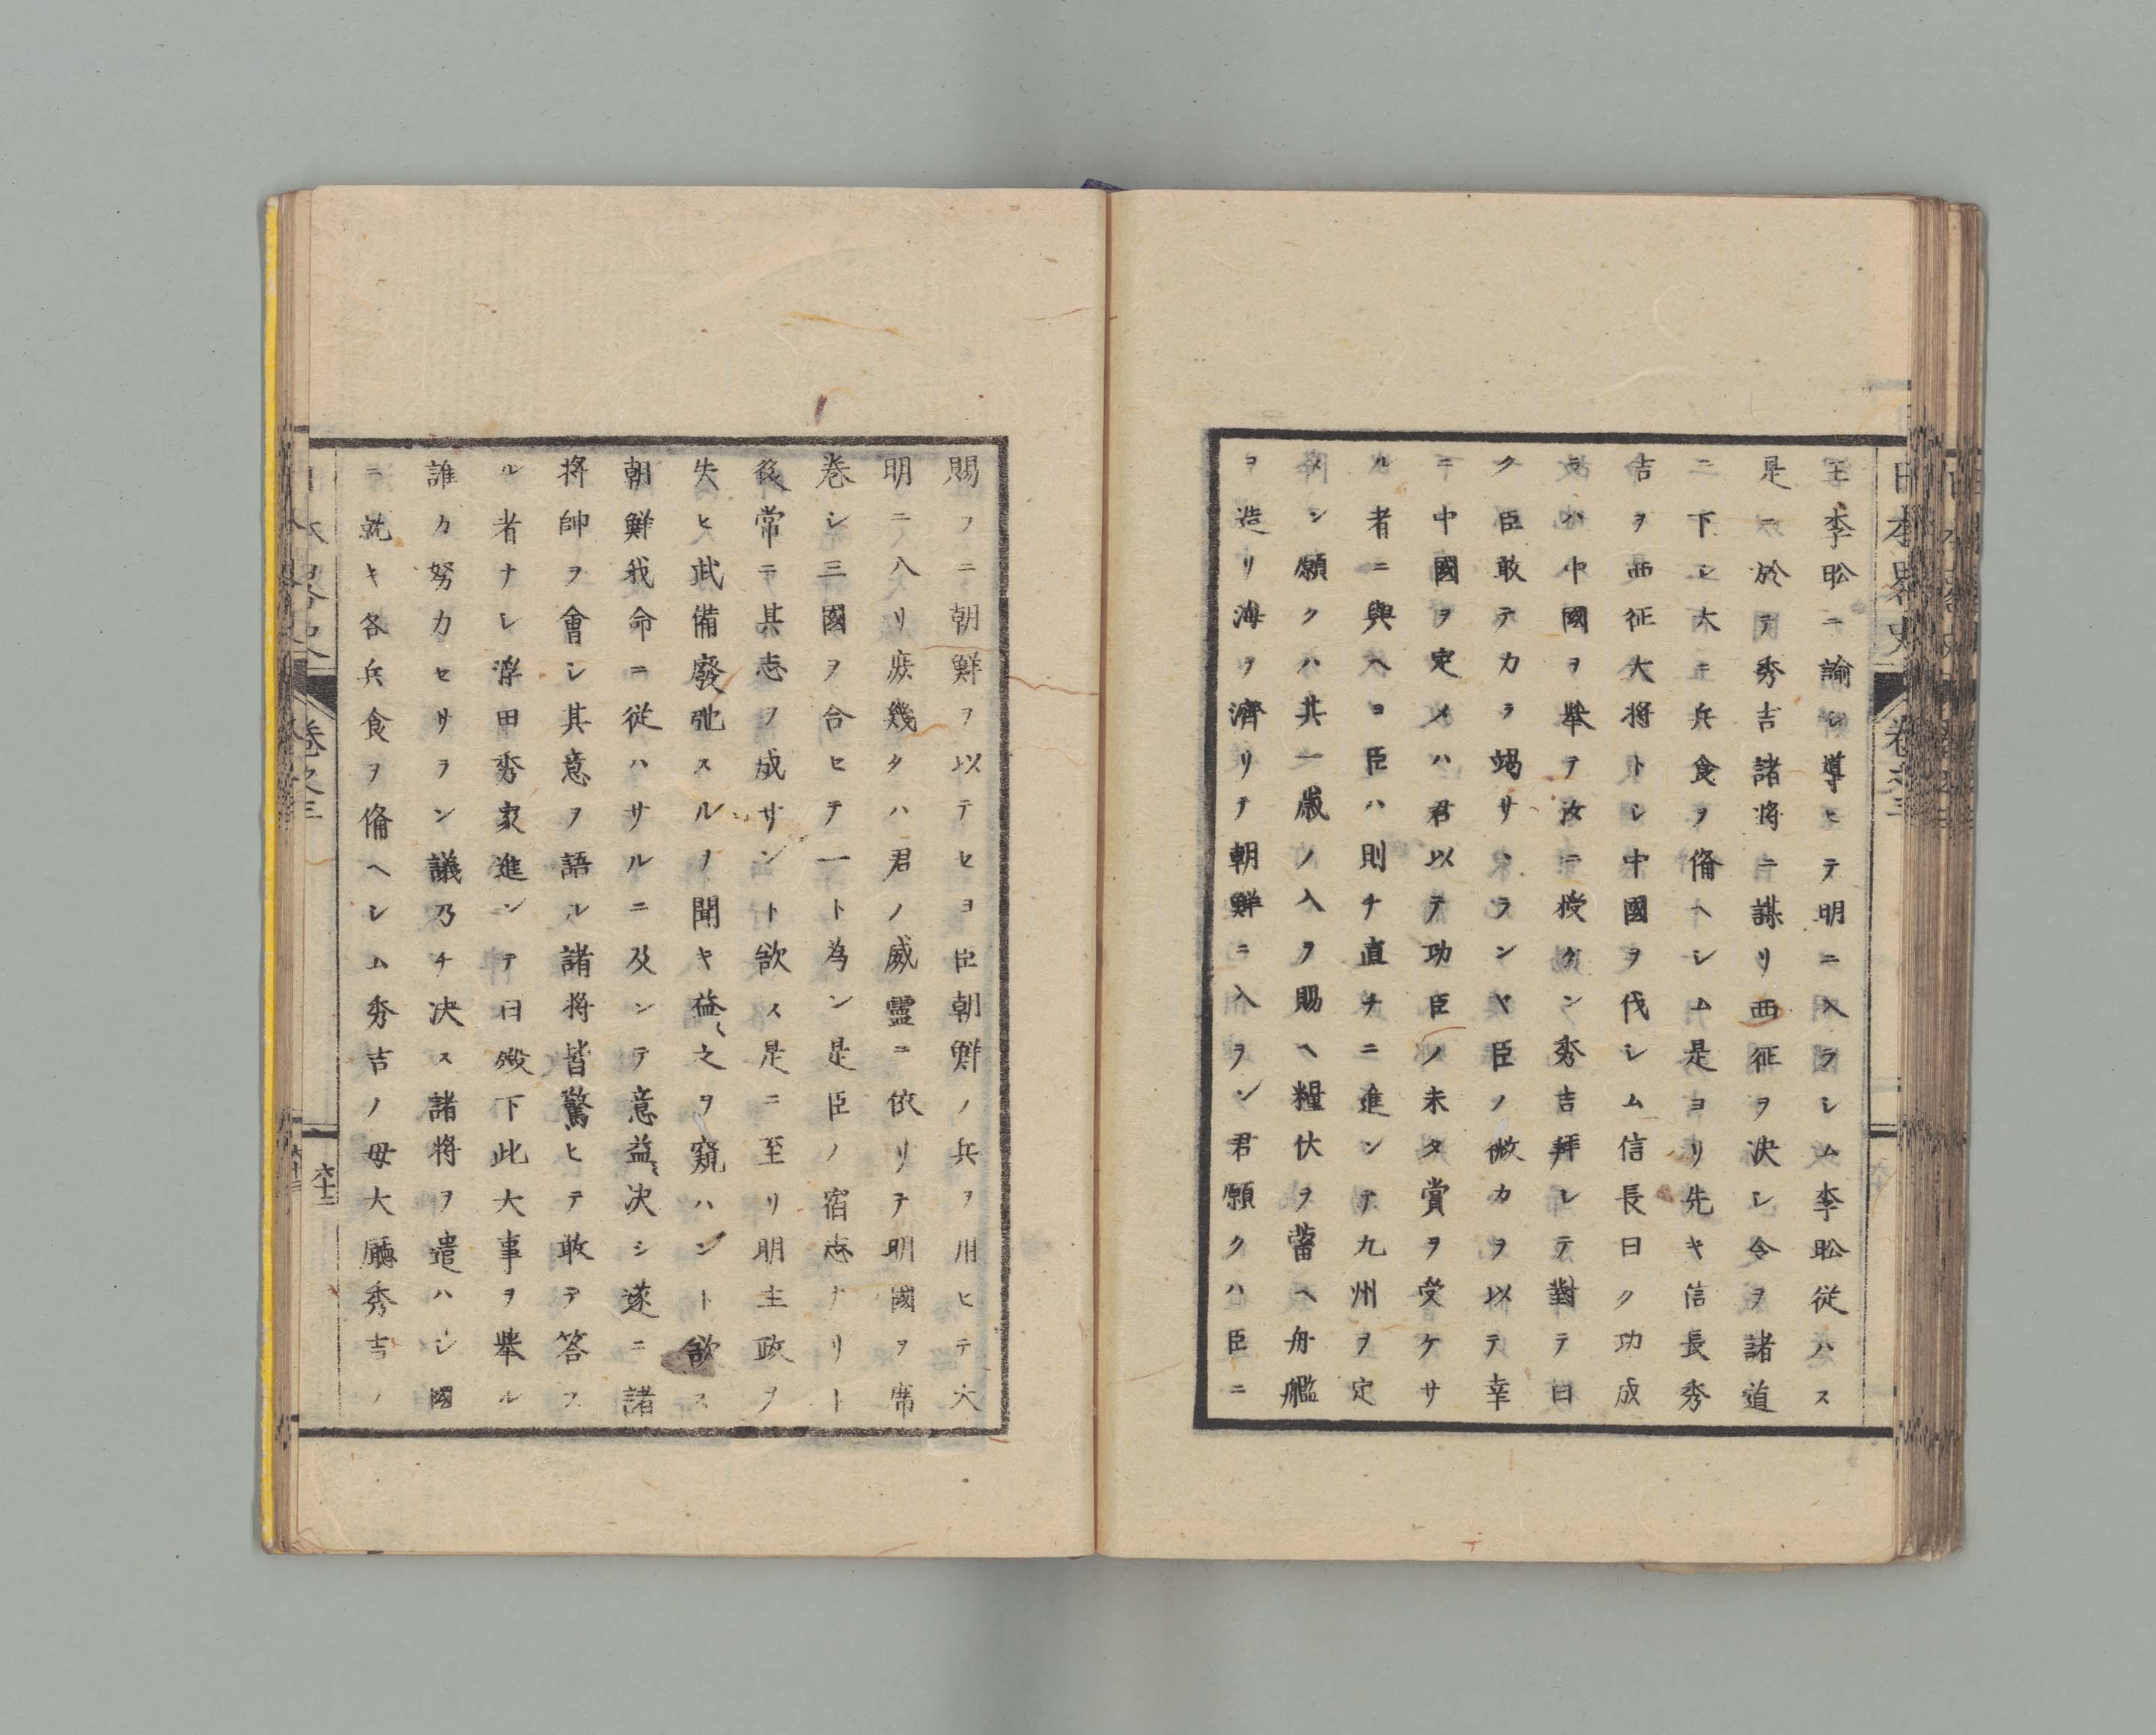 日本略史
卷之三
王李昖ニ諭シ導ヒテ明ニ入ラシム李昖従ハス
是ニ於テ秀吉諸将ニ謀リ西征ヲ決シ令ヲ諸道
ニ下シ大ニ兵食ヲ備ヘシム是ヨリ先キ信長秀
吉ヲ西征大将トシ中國ヲ伐シム信長曰ク功成
ラハ中國ヲ挙テ汝ニ授ケン秀吉拜シテ對テ曰
ク臣敢テカラ竭サヽランヤ臣ノ微カヲ以テ幸
ニ中國ヲ定メハ君以テ功臣ノ未タ賞ヲ受ケサ
ル者ニ與ヘヨ臣ハ則チ直チニ進ンテ九州ヲ定
メン願クハ其一歳ノ入ヲ賜ヘ糧伏ヲ蓄ヘ舟艦
ヲ造リ海ヲ濟リテ朝鮮ニ入ラン君願クハ臣ニ
賜フニ朝鮮ヲ以テセヨ臣朝鮮ノ兵ヲ用ヒテ大
明ニ入リ庶幾クハ君ノ威靈ニ依リテ明國ヲ席
巻シ三國ヲ合セテ一ト為ン是臣ノ宿志ナリト
後常ニ其志ヲ成サント欲ス是ニ至リ明主政ヲ
失ヒ武備廢弛スルノ聞キ益〻之ヲ窺ハント欲ス
朝鮮我命ニ従ハサルニ及ンテ意益〻決シ遂ニ諸
将帥ヲ會シ其意ヲ語ル諸将皆驚ヒテ敢テ答フ
ル者ナレ浮田秀家進ンテ曰殿下此大事ヲ挙ル
誰カ努力セサラン議乃チ決ス諸将ヲ遣ハシ國
ニ就キ各兵食ヲ備ヘシム秀吉ノ母大廳秀吉ノ
日本略史
卷之三
六十二